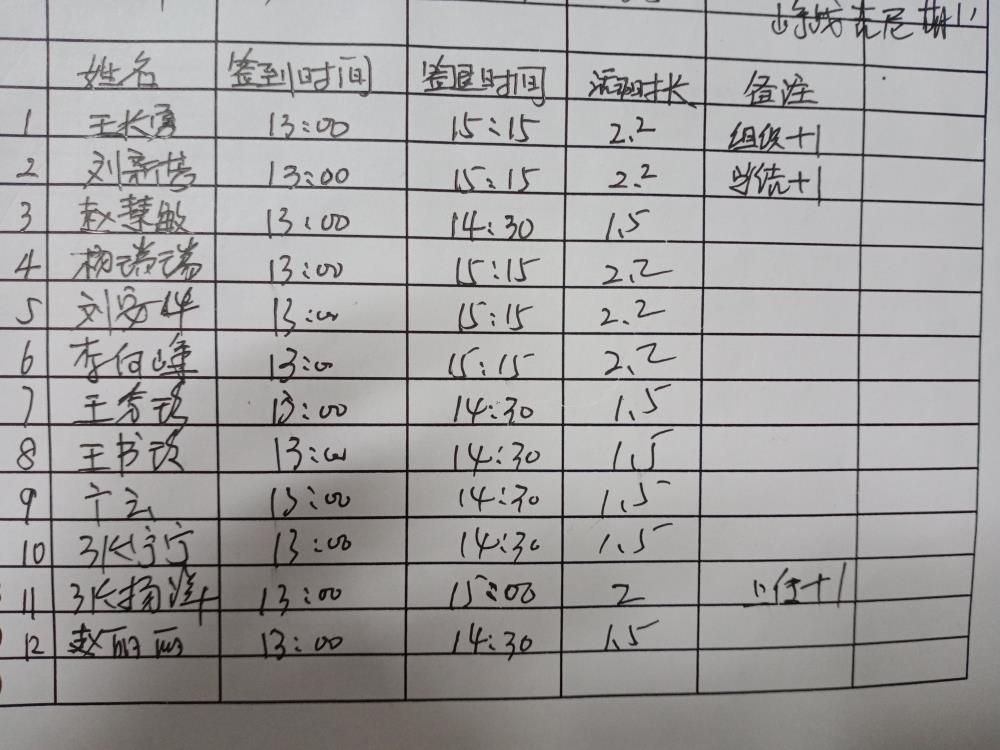 姓名 签到时间 签退时间 活动时长 备注
1 王长勇 13:00 15:15 2.2 组织+1
2 刘新营 13:00 15:15 2.2 总结+1
3 赵慧敏 13:00 14:30 1.5
4 杨瑞瑞 13:00 15:15 2.2
5 刘安华 13:00 15:15 2.2
6 李何峰 13:00 15:15 2.2
7 王 13:00 14:30 1.5
8 王书玫 13:00 14:30 1.5
9 云 13:00 14:30 1.5
10 张宁宁 13:00 14:30 1.5
11 张扬洋 13:00 15:00 2 +1
12 赵丽丽 13:00 14:30 1.5